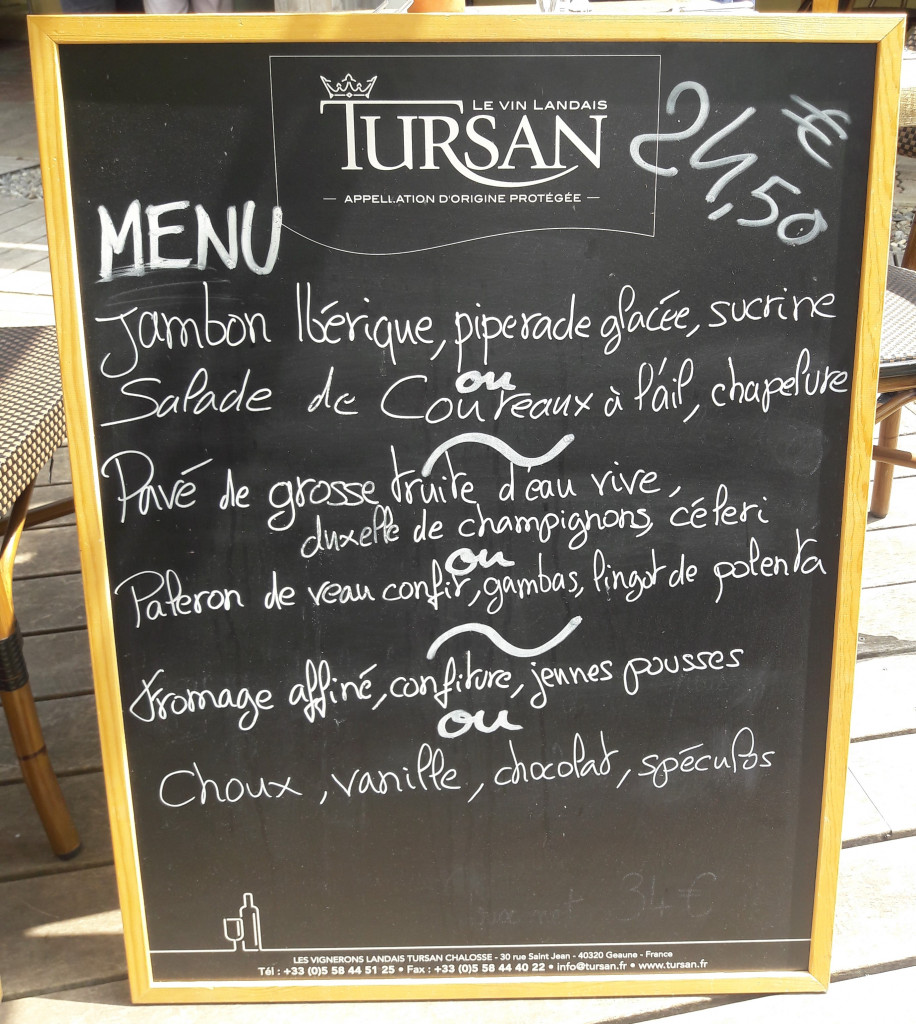 LE VIN LANDAIS
TURSAN
APPELLATION D'ORIGINE PROTÉGÉE
24,50 €
MENU
Jambon Ibérique, piperade glacée, sucrine
ou
Salade de Couteaux à l'ail, chapelure
Pavé de grosse truite d'eau vive,
duxelle de champignons, céleri
ou
Paleron de veau confit, gambas, lingot de polenta
Fromage affiné, confiture, jeunes pousses
ou
Choux, vanille, chocolat, spéculos
34 €
LES VIGNERONS LANDAIS TURSAN CHALOSSE - 30 rue Saint Jean - 40320 Geaune - France
Tél : +33 (0)5 58 44 51 25 • Fax : +33 (0)5 58 44 40 22 • info@tursan.fr • www.tursan.fr